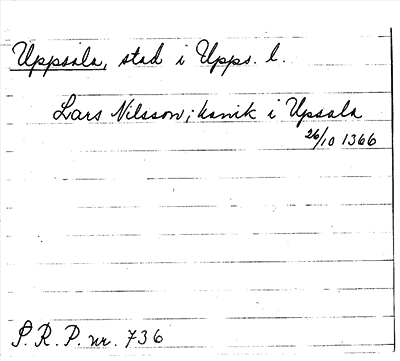 Uppsala, stad i Upps. l.
Lars Nilsson; kanik i Upsala
26/10 1366
S.R.P. nr. 736